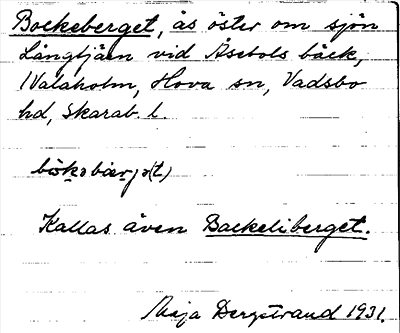 Bockeberget, ås öster om sjön
Långtjärn vid Åsebols bäck,
Valaholm, Hova sn, Vadsbo
hd, Skarab. l.
bökəbärjə(t)
Kallas även Backeliberget.
Maja Bergstrand 1931.